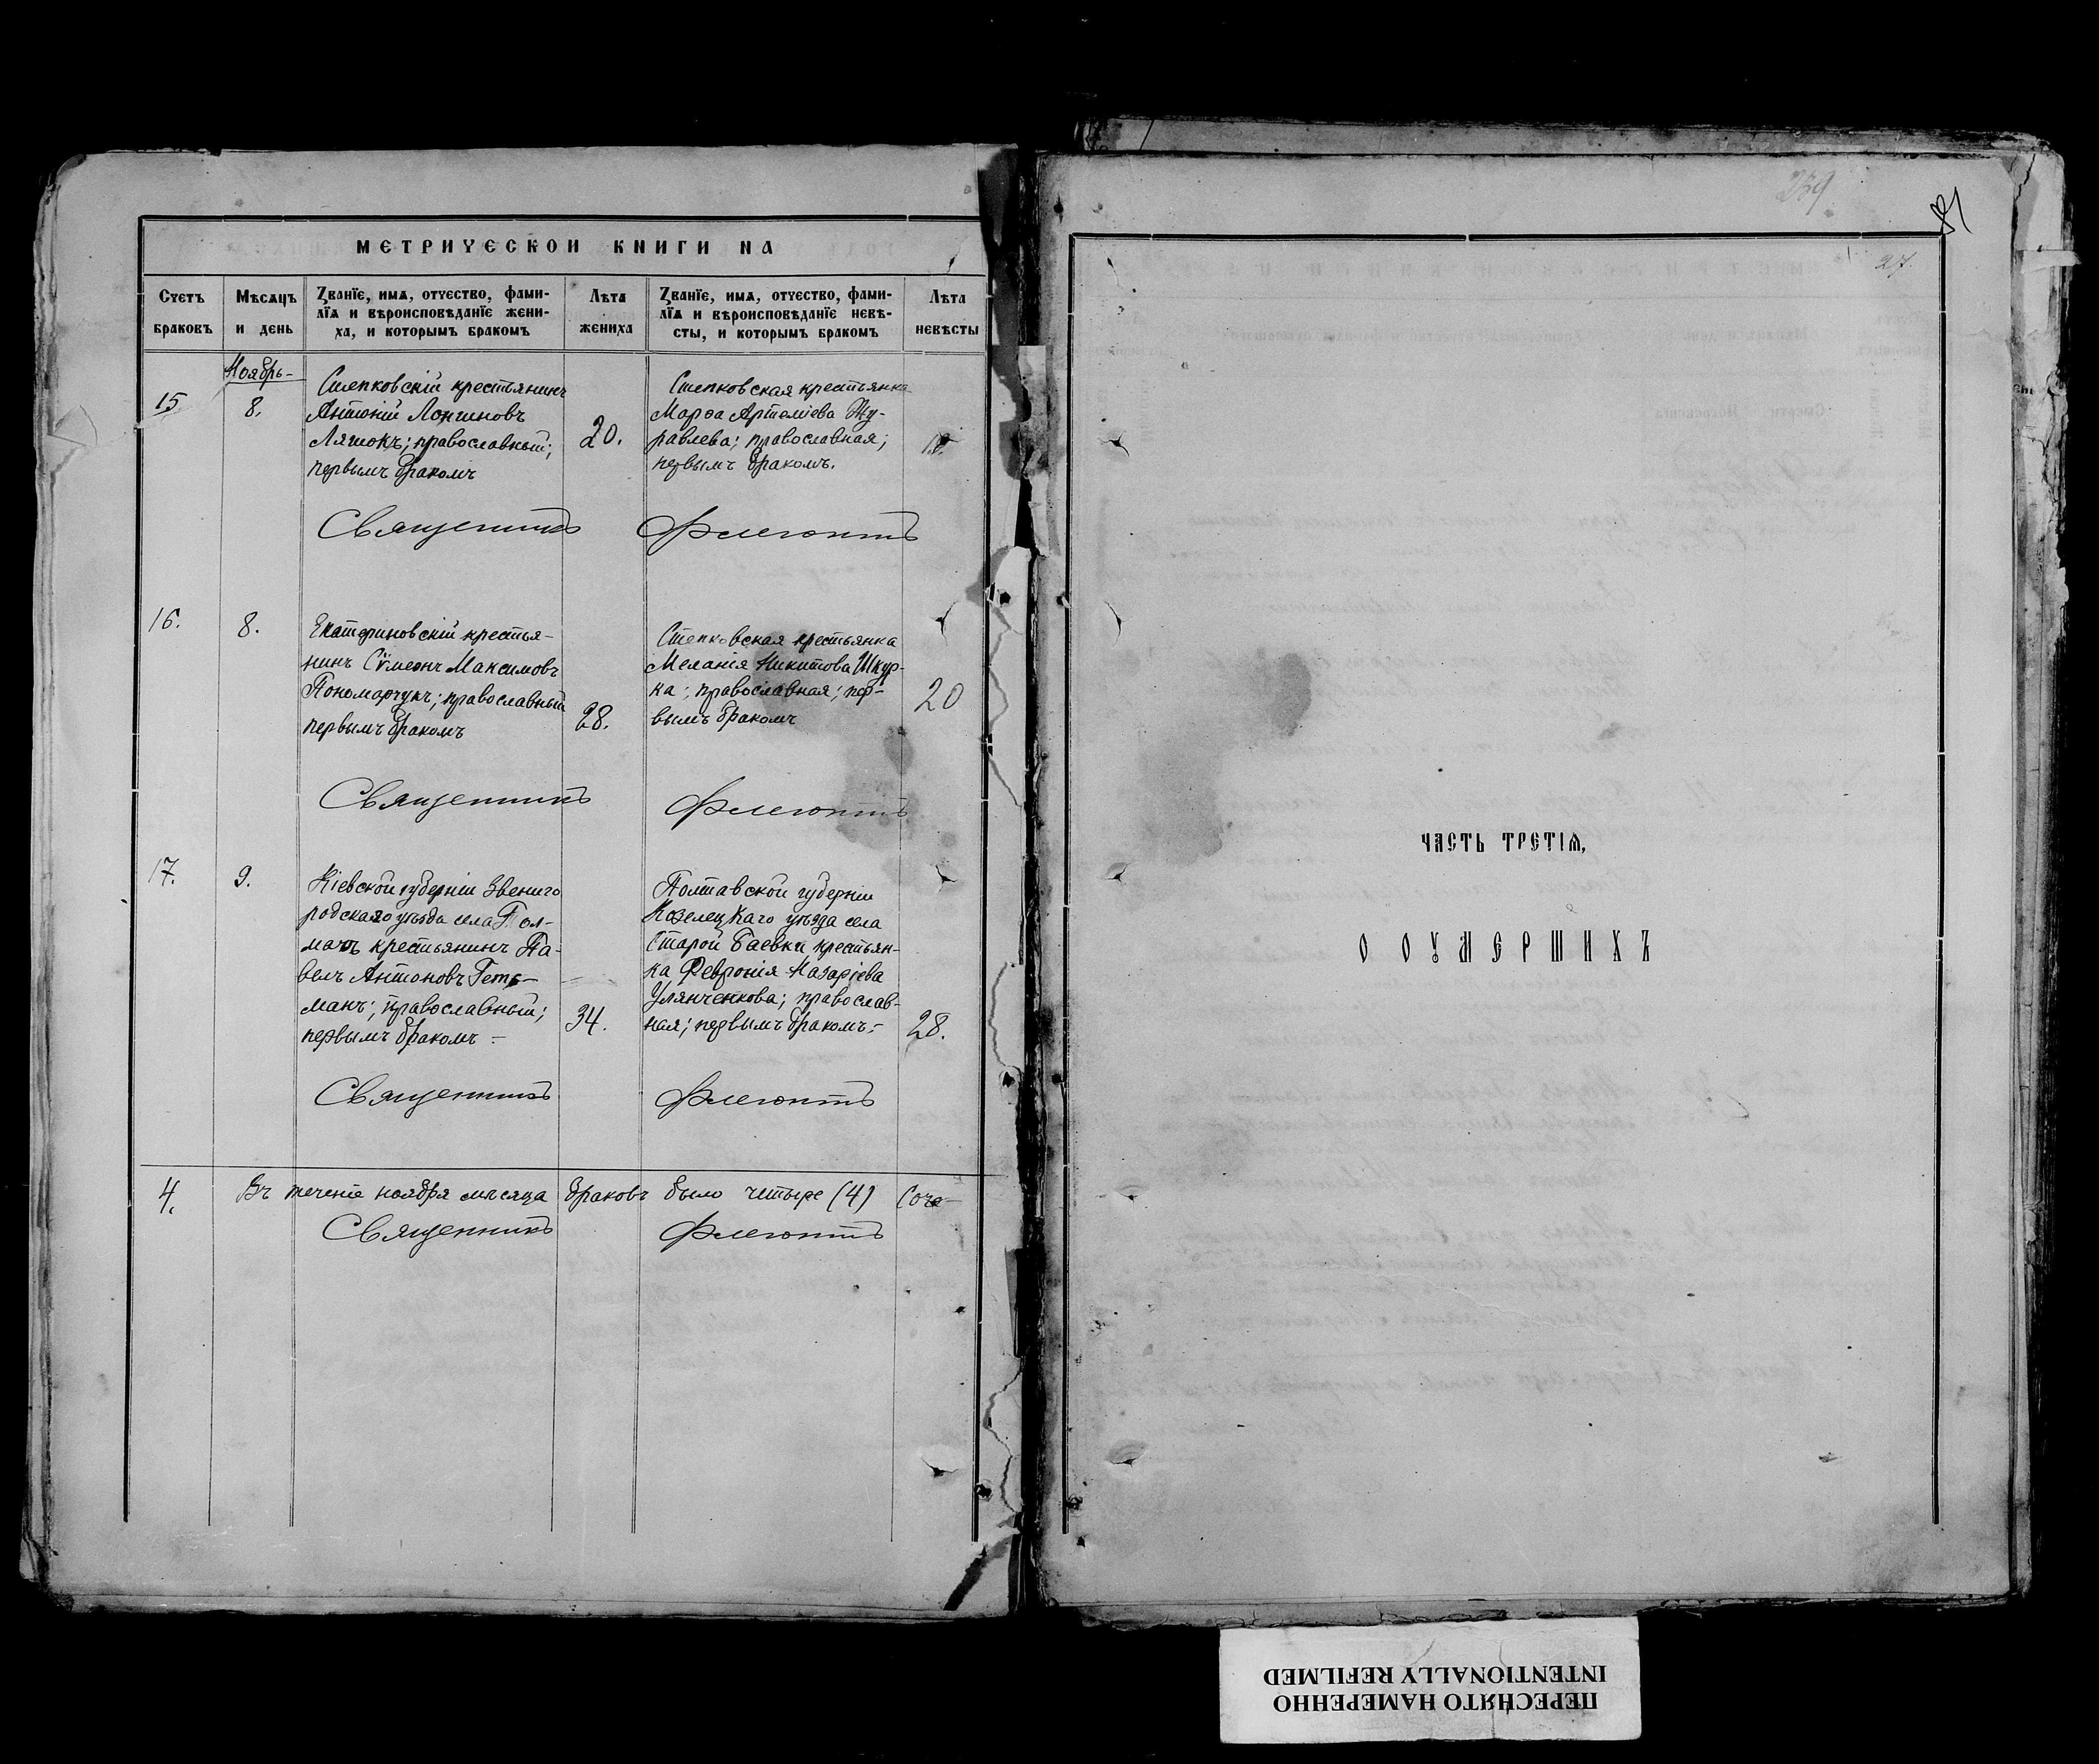 МЕТРИЧЕСКОЙ КНИГИ НА
Счетъ браковъ
Мѣсяцъ и день
Званїе, имѧ, отчество, фами-
лїѧ и вѣроисповѣданїе жени-
ха, и которымъ бракомъ
Лѣта жениха
Званїе, имѧ, отчество, фами-
лїѧ и вѣроисповѣданїе невѣ-
сты, и которымъ бракомъ
Лѣта невѣсты
Ноябрь
15
8.
Степковскій крестьянинъ
Антоній Лонгиновъ
Ляшокъ; православный;
первымъ бракомъ
20.
Степковская крестьянка
Марѳа Артеміева Жу-
равлева; православная;
первымъ бракомъ.
Священникъ
16.
8.
Екатериновскій крестья-
нинъ Сѷмеонъ Максимовъ
Пономарчукъ; православный
первымъ бракомъ
28.
Степковская крестьянка
Меланія Никитова Шкур-
ка; православная; пер-
вымъ бракомъ
20
Священникъ
17.
9.
Кіевской губерніи Звениго
родскаго уѣзда села Тол-
мачъ крестьянинъ Па-
велъ Антоновъ Геть-
манъ; православный;
первымъ бракомъ –
34.
Полтавской губерніи
Козелецкаго уѣзда села
Старой Баевки крестьян-
ка Февронія Назаріева
Улянченкова; православ-
ная; первымъ бракомъ.–
28.
Священникъ
4.
Въ теченіе ноября мѣсяца браковъ было четыре (4)
Священникъ
239
81
27.
ЧАСТЬ ТРЕТІѦ,
О ОУМЕРШИХЪ
ПЕРЕСНЯТО НАМЕРЕННО
INTENTIONALLY REFILMED